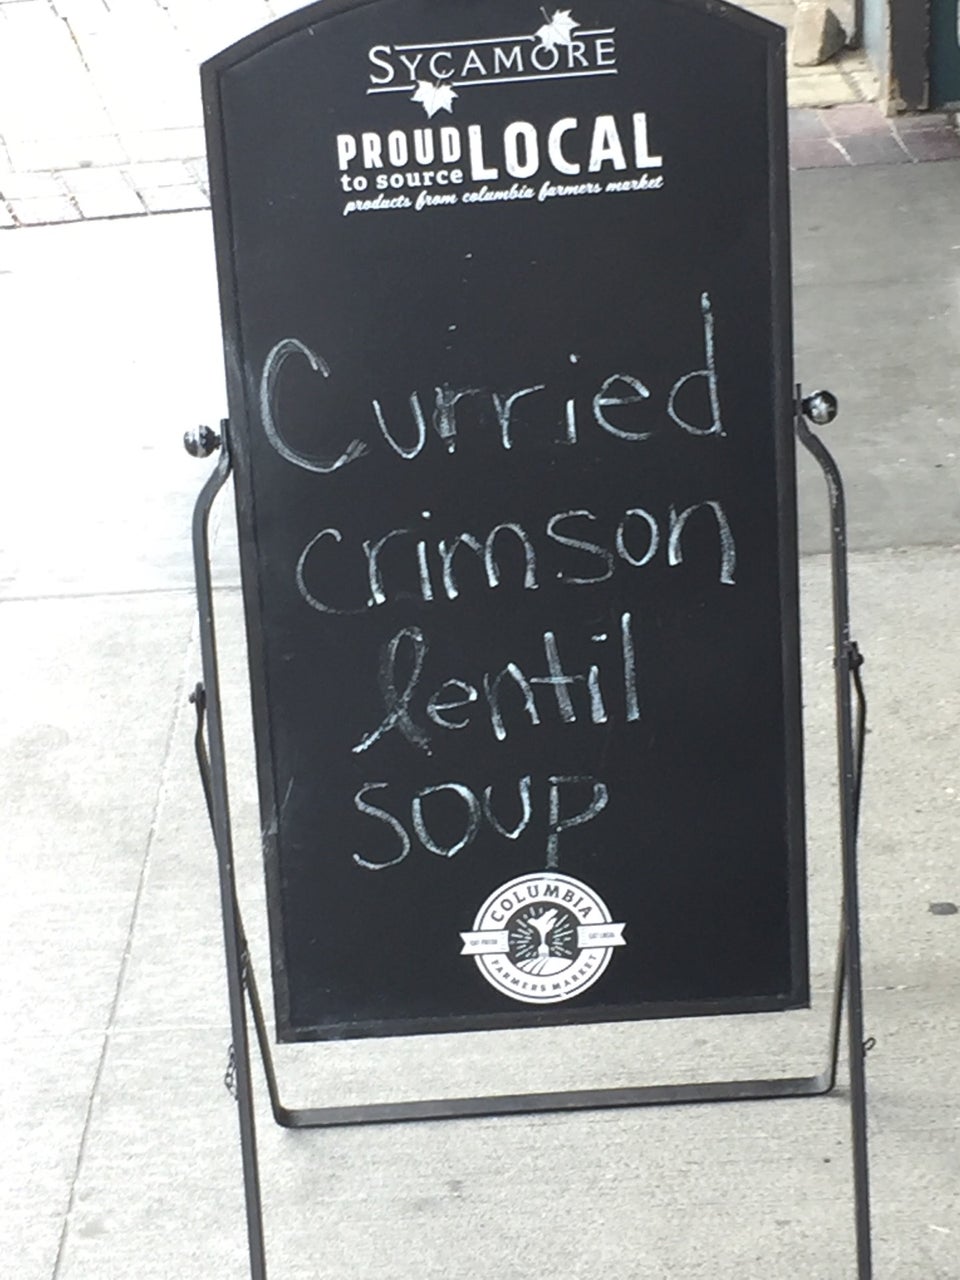 SYCAMORE
PROUD LOCAL
to source
products from columbia farmers market
Curried
crimson
lentil
soup
COLUMBIA
EAT FRESH EAT LOCAL
FARMERS MARKET